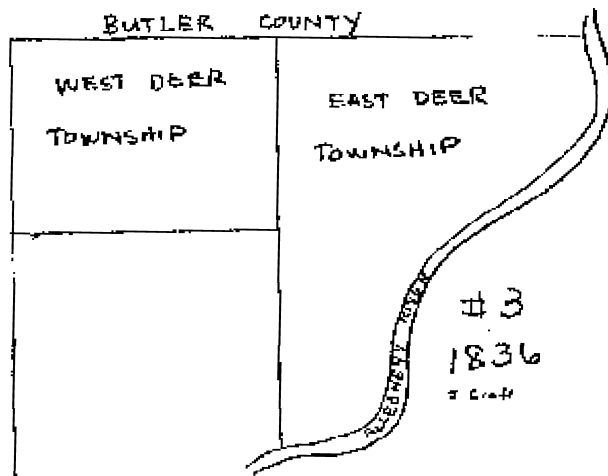 BUTLER COUNTY
WEST DEER
TOWNSHIP
EAST DEER
TOWNSHIP
ALLEGHENY RIVER
# 3
1836
J Craft